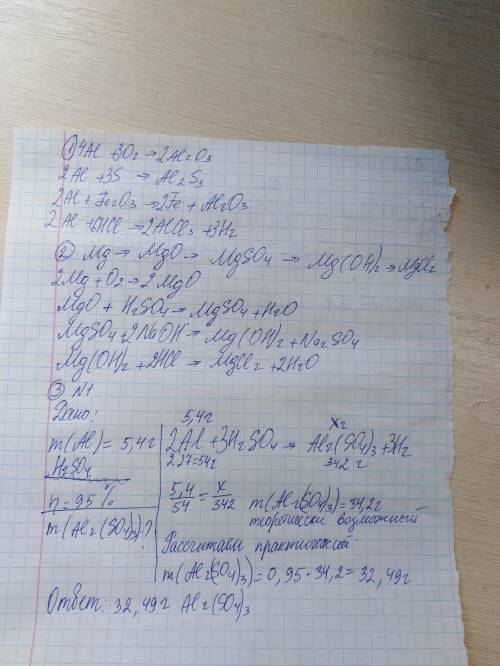 ① 4Al + 3O₂ → 2Al₂O₃
2Al + 3S → Al₂S₃
2Al + Fe₂O₃ → 2Fe + Al₂O₃
2Al + 6HCl → 2AlCl₃ + 3H₂
② Mg → MgO → MgSO₄ → Mg(OH)₂ → MgCl₂
2Mg + O₂ → 2MgO
MgO + H₂SO₄ → MgSO₄ + H₂O
MgSO₄ + 2NaOH → Mg(OH)₂ + Na₂SO₄
Mg(OH)₂ + 2HCl → MgCl₂ + 2H₂O
③ N1
Дано:
m(Al) = 5,4г
H₂SO₄
η = 95%
m(Al₂(SO₄)₃)-?
5,4г xг
2Al + 3H₂SO₄ → Al₂(SO₄)₃ + 3H₂
2·27=54г 342 г
5,4/54 = x/342 m(Al₂(SO₄)₃) = 34,2г
теоретически возможный
Рассчитаем практический:
m(Al₂(SO₄)₃) = 0,95·34,2 = 32,49г
Ответ: 32,49г Al₂(SO₄)₃